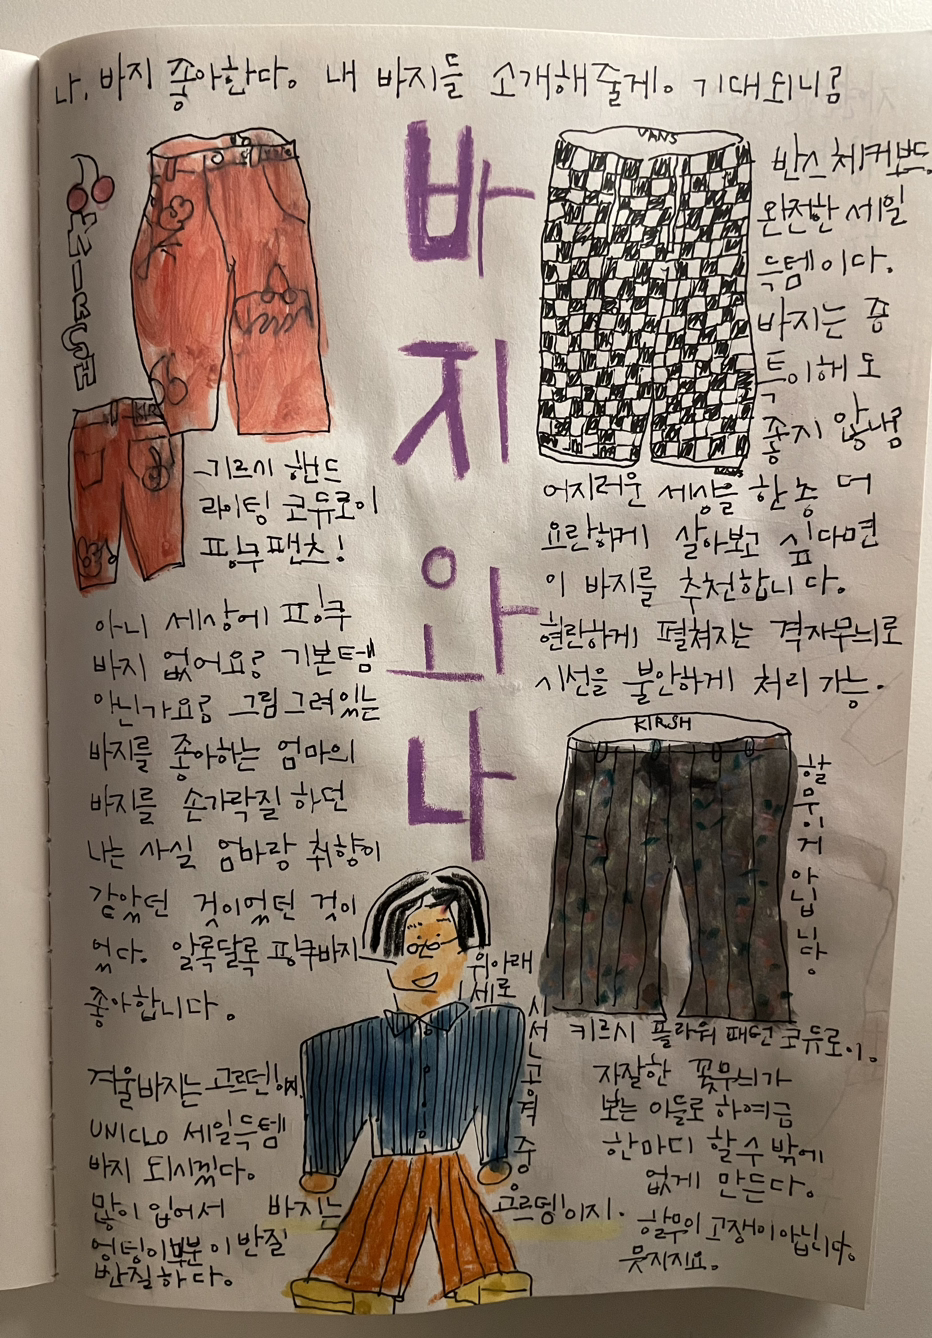 나, 바지 좋아한다。 내 바지들 소개해줄게。 기대되니?
바
지
와
나
KIRSH
키르시 핸드
라이팅 코듀로이
핑쿠팬츠!
아니 세상에 핑쿠
바지 없어요? 기본템
아닌가요? 그림그려있는
바지를 좋아하는 엄마의
바지를 손가락질 하던
나는 사실 엄마랑 취향이
같았던 것이었던 것이
었다. 알록달록 핑쿠바지
좋아합니다。
겨울바지는 고르덴이지.
UNICLO 세일득템
바지 되시겠다。
많이 입어서
엉덩이부분이 반질
반질하다。
VANS
반스 체커보드.
완전한 세일
득템이다.
바지는 중
투이해도
좋지 않냐?
VANS
어지러운 세상을 한층 더
요란하게 살아보고 싶다면
이 바지를 추천합니다.
현란하게 펼쳐지는 격자무늬로
시선을 불안하게 처리 가능.
KIRSH
할무이거 아닙니당
키르시 플라워 패턴 코듀로이。
자잘한 꽃무늬가
보는 이들로 하여금
한마디 할 수 밖에
없게 만든다。
할무이 고쟁이아닙니다。
묻지지요。
위아래
세로
시서느공격중
바지는
고르뎅이지.